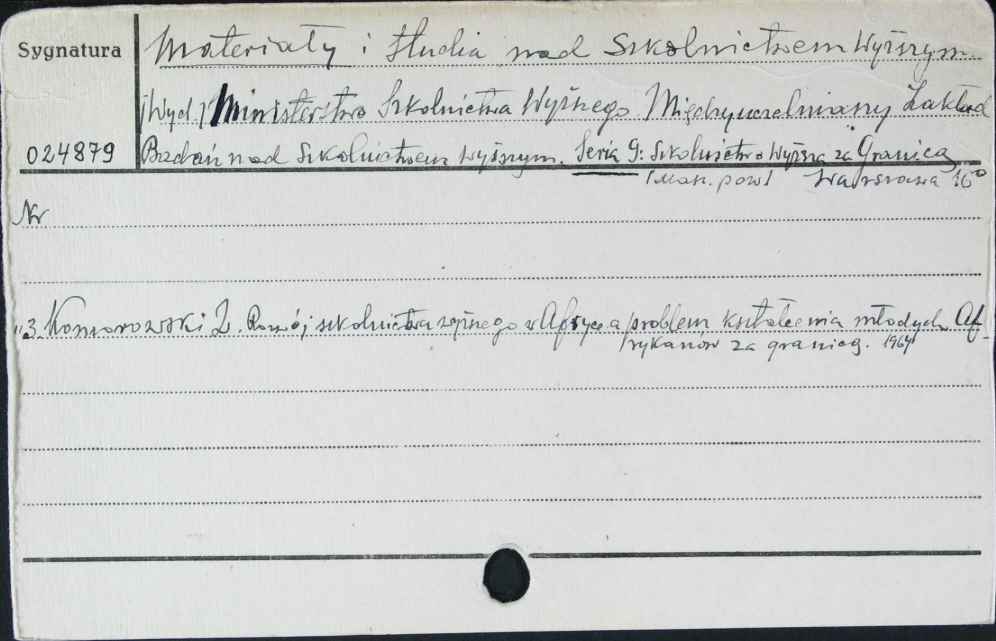 Sygnatura
Materiały i Studia nad Szkolnictwem Wyższym
/Wyd./ Ministerstwo Szkolnictwa Wyższego Międzyuczelniany Zakład
024879
Badań nad Szkolnictwem Wyższym. Seria G: Szkolnictwo Wyższe za Granicą
/Masz. pow./ Warszawa 16°
Nr
3. Komorowski Z. Rozwój szkolnictwa wyższego w Afryce a problem kształcenia młodych Af-
rykanów za granicą. 1964